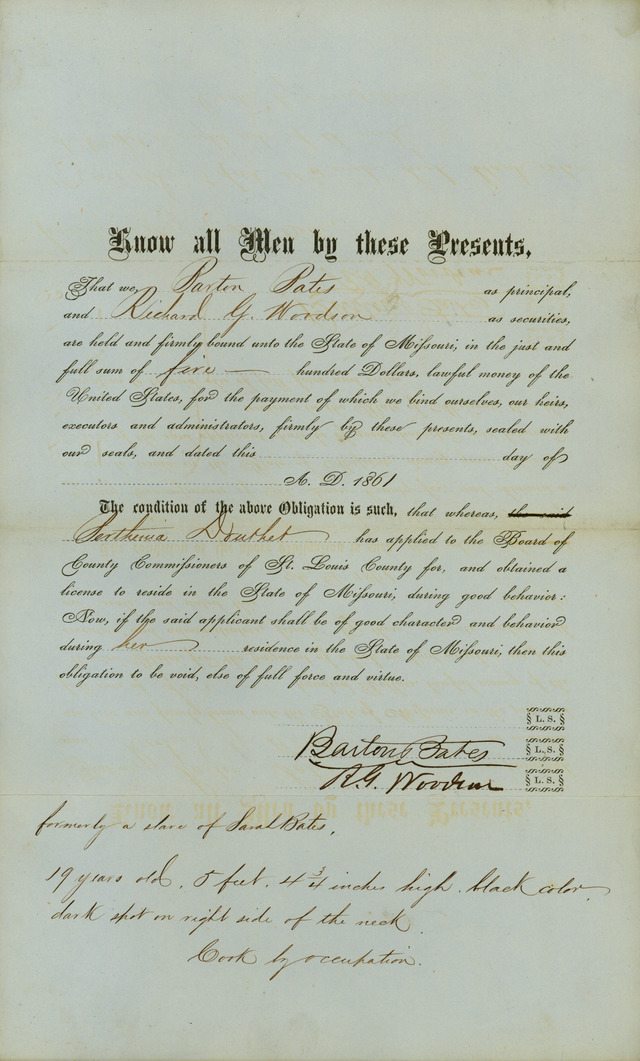 Know all Men by these Presents,
That we, Barton Bates as principal,
and Richard G. Woodson as securities,
are held and firmly bound unto the State of Missouri, in the just and
full sum of five — hundred Dollars, lawful money of the
United States, for the payment of which we bind ourselves, our heirs,
executors and administrators, firmly by these presents, sealed with
our seals, and dated this day of
A. D. 1861
The condition of the above Obligation is such, that whereas, the said
Douthet has applied to the Board of
County Commissioners of St. Louis County for, and obtained a
license to reside in the State of Missouri, during good behavior:
Now, if the said applicant shall be of good character and behavior
during her residence in the State of Missouri, then this
obligation to be void, else of full force and virtue.
§ L. S. §
Barton Bates § L. S. §
R. G. Woodson § L. S. §
formerly a slave of Sarah Bates,
19 years old, 5 feet, 4 3/4 inches high, black color,
dark spot on right side of the neck.
Cook by occupation.